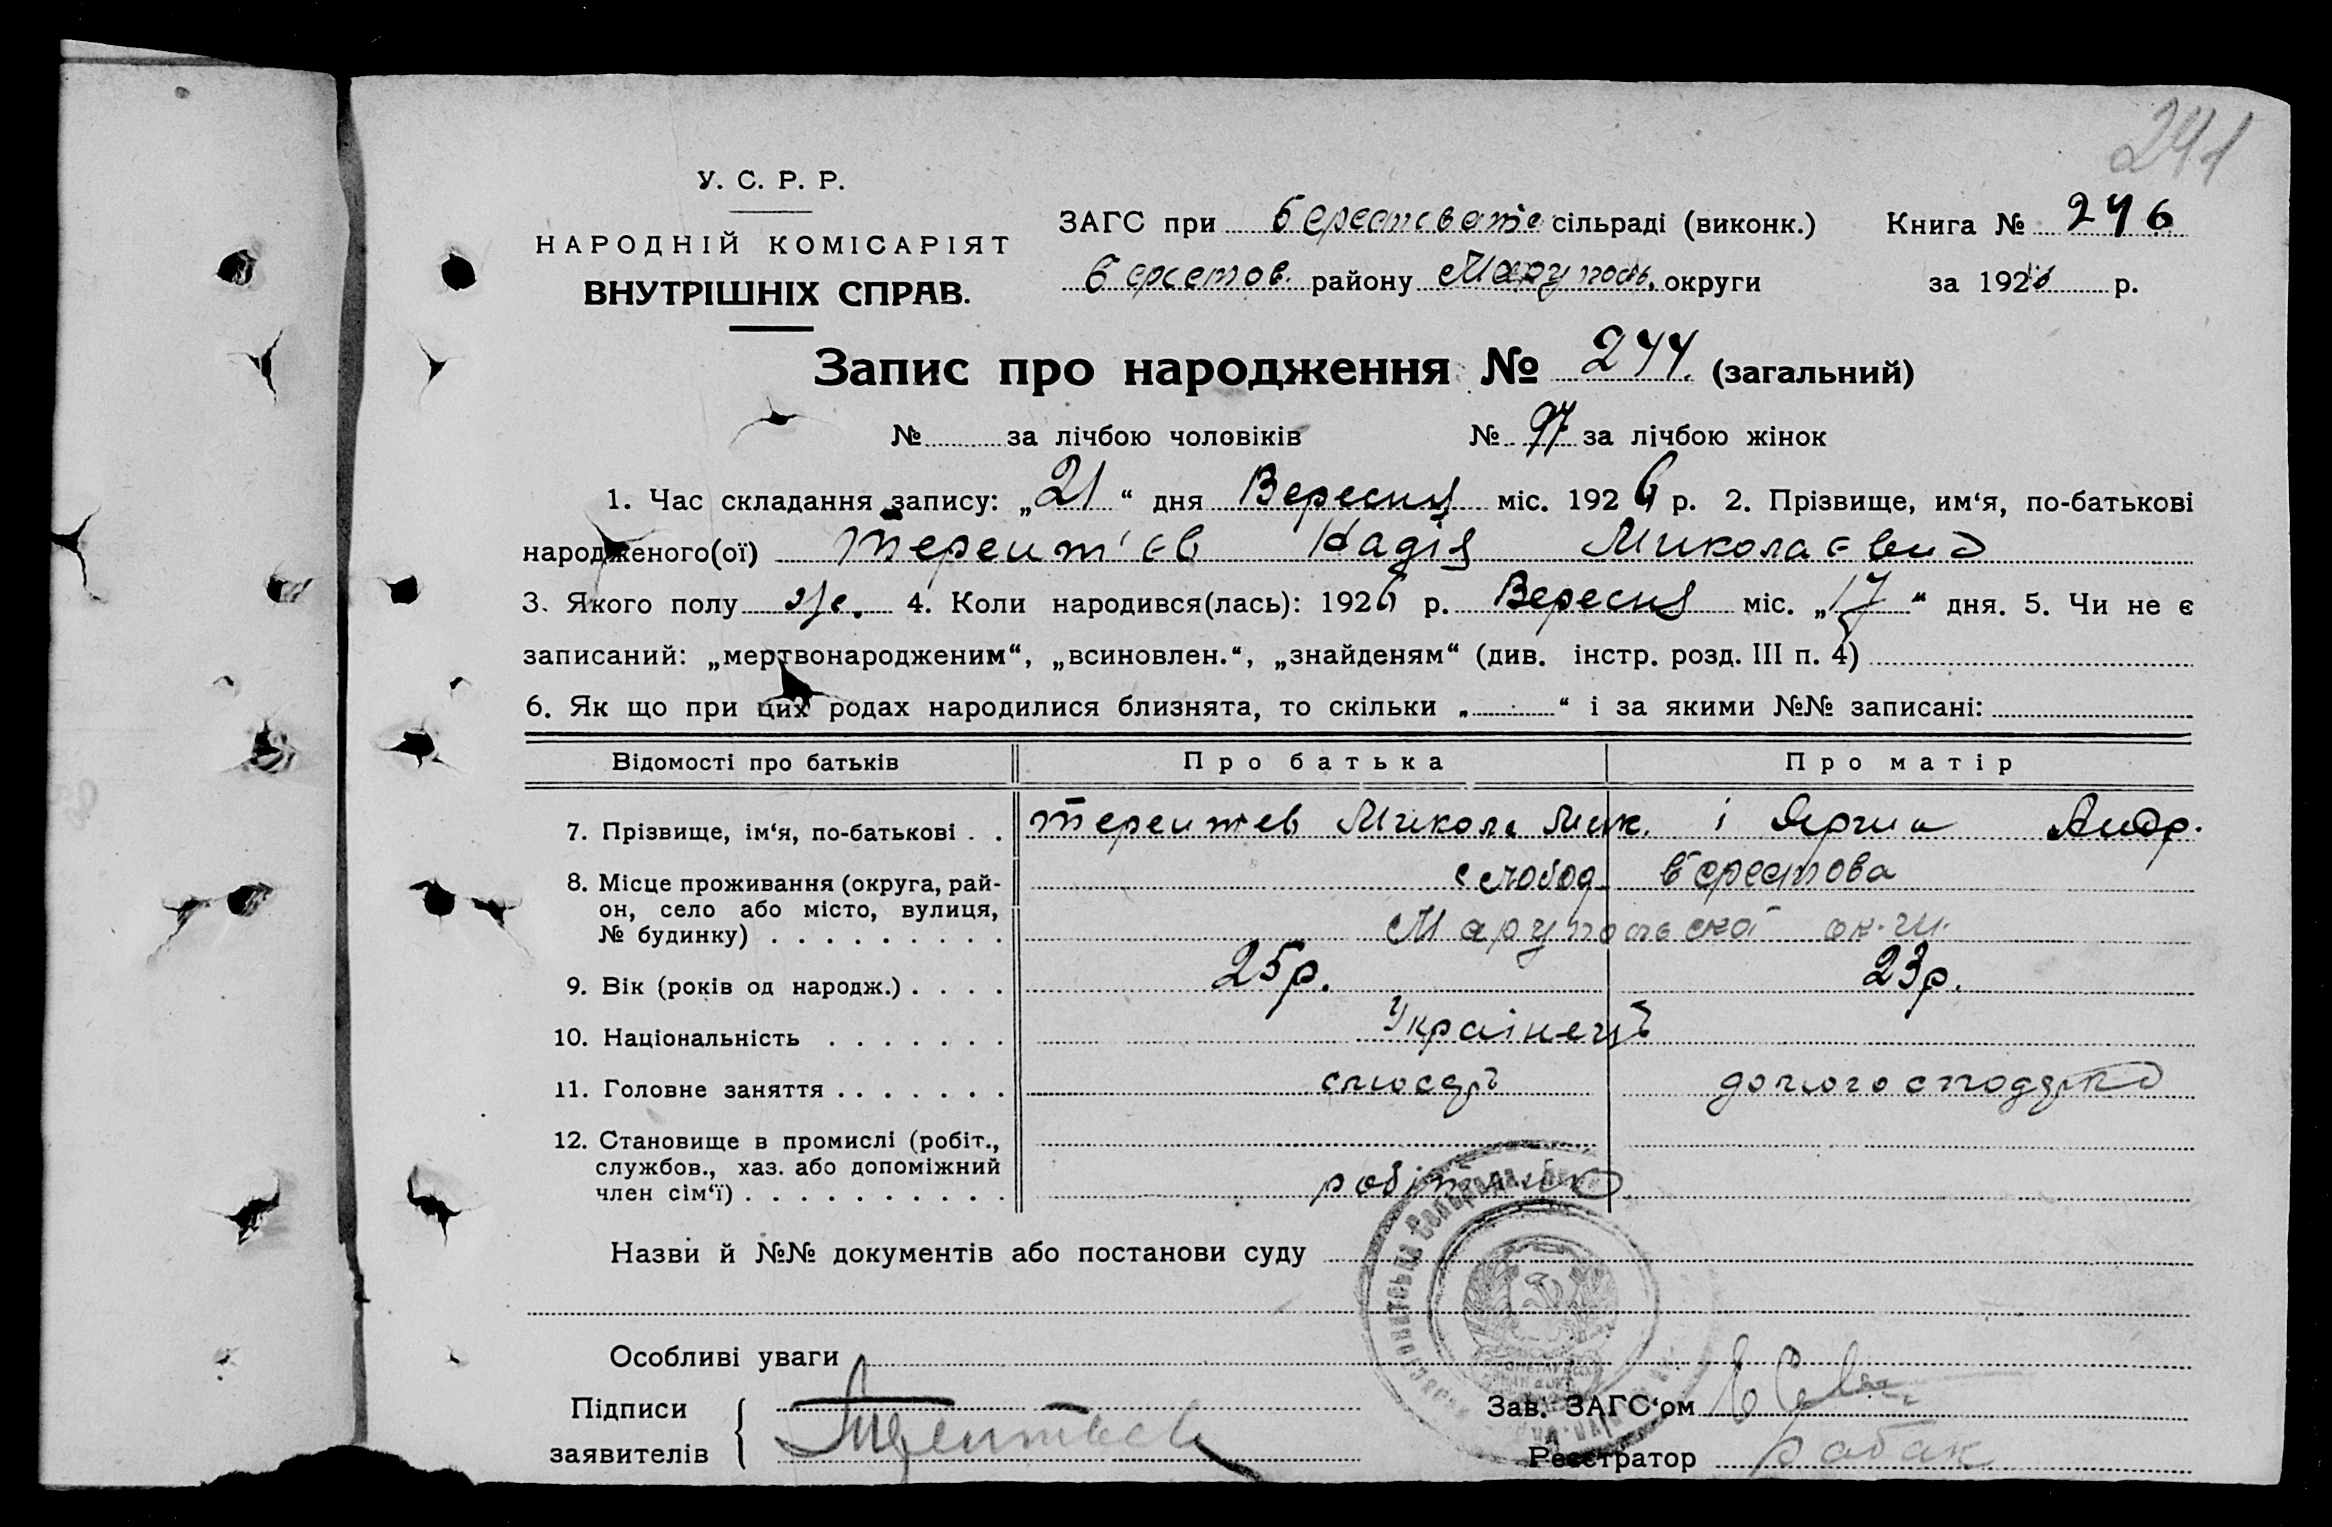 241
У. С. Р. Р.
НАРОДНІЙ КОМІСАРІЯТ
ВНУТРІШНІХ СПРАВ.
ЗАГС при сільраді (виконк.) Книга № 246
району округи за 1926 р.
Запис про народження № 244. (загальний)
№ за лічбою чоловіків № 97 за лічбою жінок
1. Час складання запису: „21“ дня Вересня міс. 1926 р. 2. Прізвище, им‘я, по-батькові
народженого(ої) Терент'єв Надія
3. Якого полу ж. 4. Коли народився(лась): 1926 р. Вересня міс. „17“ дня. 5. Чи не є
записаний: „мертвонародженим“, „всиновлен.“, „знайденям“ (див. інстр. розд. III п. 4)
6. Як що при цих родах народилися близнята, то скільки „ “ і за якими №№ записані:
Відомості про батьків Про батька Про матір
7. Прізвище, ім‘я, по-батькові . . Терентев Микола Мик. і Андр.
8. Місце проживання (округа, рай-
он, село або місто, вулиця,
№ будинку) . . . . . . . . .
9. Вік (років од народж.) . . . . 25р. 23р.
10. Національність . . . . . . . Українец
11. Головне заняття . . . . . . .
12. Становище в промислі (робіт.,
службов., хаз. або допоміжний
член сім‘ї) . . . . . . . . . . робітник
Назви й №№ документів або постанови суду
Особливі уваги
Підписи
заявителів
Зав. ЗАГС‘ом
Реєстратор